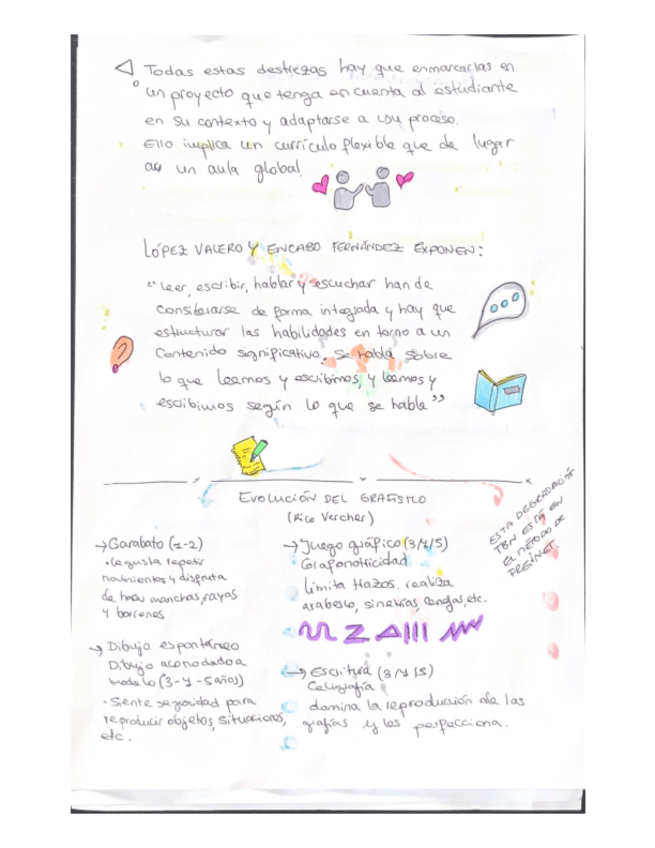 Todas estas destrezas hay que enmarcarlas en
un proyecto que tenga en cuenta al estudiante
en su contexto y adaptarse a su proceso.
Ello implica un currículo flexible que de lugar
a un aula global.
LÓPEZ VALERO Y ENCABO FERNÁNDEZ EXPONEN:
“Leer, escribir, hablar y escuchar han de
considerarse de forma integrada y hay que
estructurar las habilidades en torno a un
contenido significativo. Se habla sobre
lo que leemos y escribimos, y leemos y
escribimos según lo que se hable”
EVOLUCIÓN DEL GRAFISMO
(Rico Vercher)
→ Garabato (1-2)
• Le gusta repetir
movimientos y disfruta
de hacer manchas, rayas
y borrones
→ Dibujo espontáneo
Dibujo acomodado a
modelo (3-4-5 años)
• Siente seguridad para
reproducir objetos, situaciones,
etc.
→ Juego gráfico (3/4/5)
Grafomotricidad
Limita trazos. realiza
arabesco, simetrías, etc.
→ Escritura (3/4/5)
Caligrafía
domina la reproducción de las
grafías y las perfecciona.
ESTA DEGRADACIÓN
TBN ESTÁ EN
EL MÉTODO DE
FREINET.